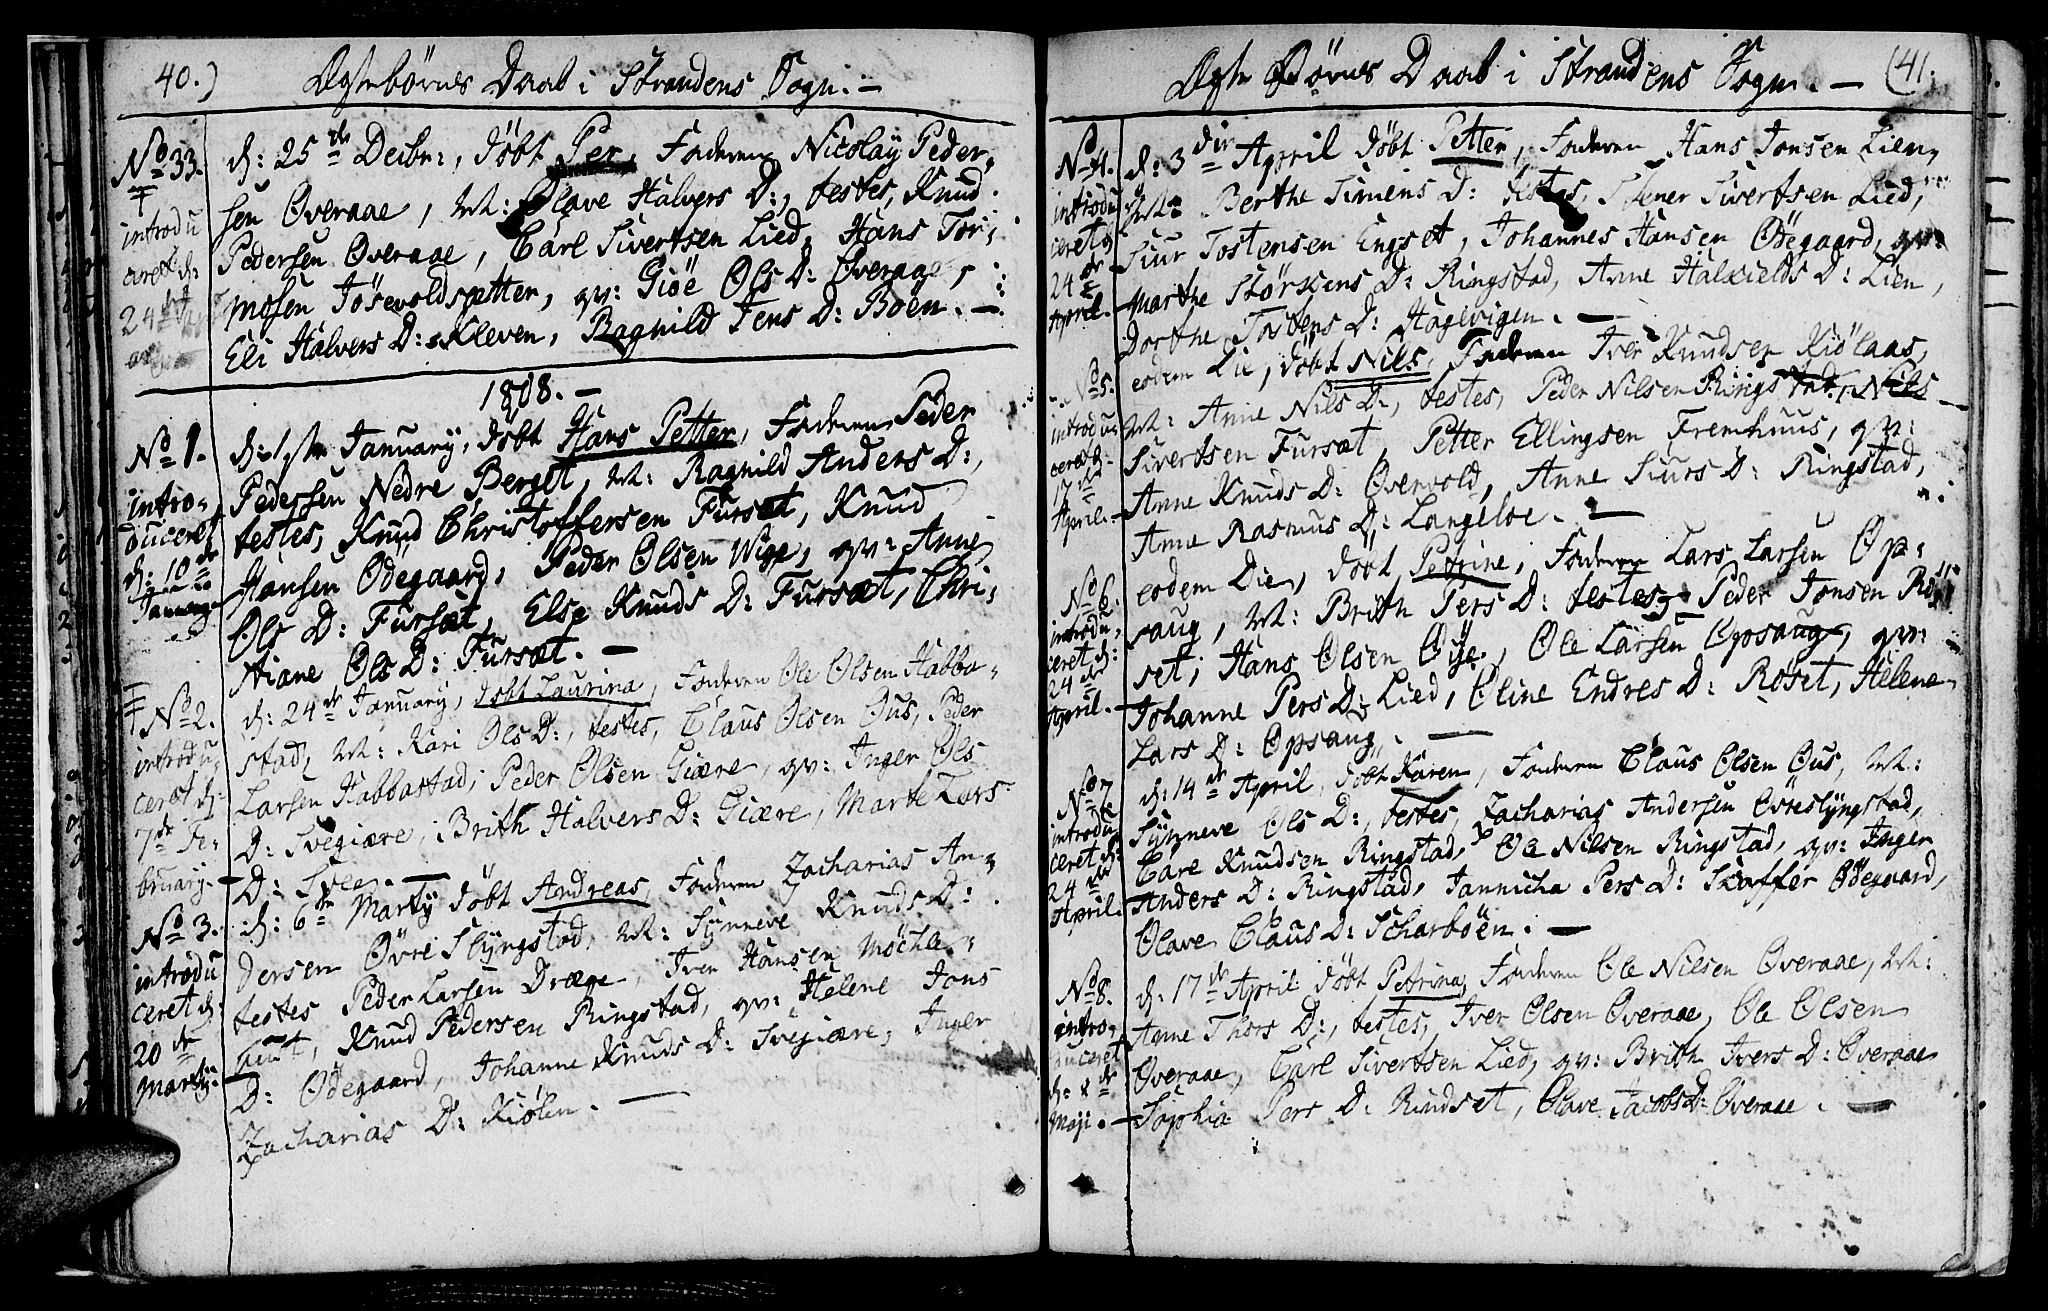 40.)
Ægtebörnes Daab i Strandens Sogn. —
No 33.
introdu
ceret d:
24de
d: 25de Decbr:, döbt Per, Faderen Nicolaÿ Peder,
sen Øveraae, M: Olave Halvers D:, testes, Knud
Pedersen Øveraae, Carl Sivertsen Lied, Hans Tor,
mosen Jösevoldsætter, qv: Giöe Ols D: Øveraae,
Eli Halvers D: Kleven, Ragnild Jens D: Böen. —
1808. —
No 1.
intro,
duceret
d: 10de
January
d: 1ste Januarÿ, döbt Hans Petter, Faderen Peder
Pedersen Nedre Berget, M: Ragnild Anders D:,
testes, Knud Christoffersen Fursæt, Knud
Hansen Ødegaard, Peder Olsen Wige, qv: Anne
Ols D: Fursæt, Else Knuds D: Fursæt, Chri,
stiane Ols D: Fursæt. —
No 2.
introdu,
ceret d:
7de Fe,
bruarÿ. —
d: 24de Januarÿ, döbt Laurina, Faderen Ole Olsen Habbo,
stad, M: Kari Ols D:, testes, Claus Olsen Øus, Peder
Larsen Habbastad, Peder Olsen Giære, qv: Inger Ols
D: Svegiære, Brith Halvers D: Giære, Marte Lars
D: Svee. —
No 3.
introdu
ceret d:
20de
Martÿ. —
d: 6de Martÿ döbt Andreas, Faderen Zacharias An,
dersen Övre Slÿngstad, M: Sÿnneve Knuds D:
testes Peder Larsen Dræge, Iver Hansen Möchle,
bust, Knud Pedersen Ringstad, qv: Helene Jons
D: Ødegaard, Johanne Knuds D: Svegiære, Inger
Zacharias D: Kiölen. —
Ægte Börnes Daab i Strandens Sogn. — (41.
No 4.
introdu
ceret d:
24de
April. —
d: 3die April döbt Petter, Faderen Hans Jonsen Lien,
M: Berthe Simens D: testes, Stener Sivertsen Lied,
Siur Tostensen Engset, Johannes Hansen Ödegaard, qv:
Marthe Störkens D: Ringstad, Anne Halkields D: Lien,
Dorthe Tostens D: Hagevigen. —
No 5.
introdu
ceret d:
17de
April. —
eodem Die, döbt Nils, Faderen Iver Knudsen Kiölaas,
M: Anne Nils D:, testes, Peder Nilsen Ringstad, Nils
Sivertsen Fursæt, Petter Ellingsen Fremhuus, qv:
Anne Knuds D: Overvold, Anne Siurs D: Ringstad,
Anne Rasmus D: Langeloe. —
No 6.
introdu,
ceret d:
24de
April. —
eodem Die, döbt Petrine, Faderen Lars Larsen Op,
saug, M: Brith Pers D: testes, Peder Jonsen Rö,
set, Hans Olsen Öÿe, Ole Larsen Opsaug, qv:
Johanne Pers D: Lied, Oline Endres D: Röset, Helene
Lars D: Opsaug. —
No 7
introdu
ceret d:
24de
April. —
d: 14de April, döbt Karen, Faderen Claus Olsen Øus, M:
Sÿnneve Ols D:, testes, Zacharias Andersen Övreslÿngstad,
Carl Knudsen Ringstad, Ole Nilsen Ringstad, qv: Inger
Anders D: Ringstad, Jannicha Pers D: Skaffer Ödegaard,
Olave Claus D: Scharböen. —
No 8.
intro,
duceret
d: 8de
Maji. —
d: 17de April döbt Petrina, Faderen Ole Nilsen Øveraae, M:
Anne Thors D:, testes, Iver Olsen Øveraae, Ole Olsen
Øveraae, Carl Sivertsen Lied, qv: Brith Ivers D: Øveraae
Sophia Pers D: Rindset, Olave Jacobs D: Øveraae. —